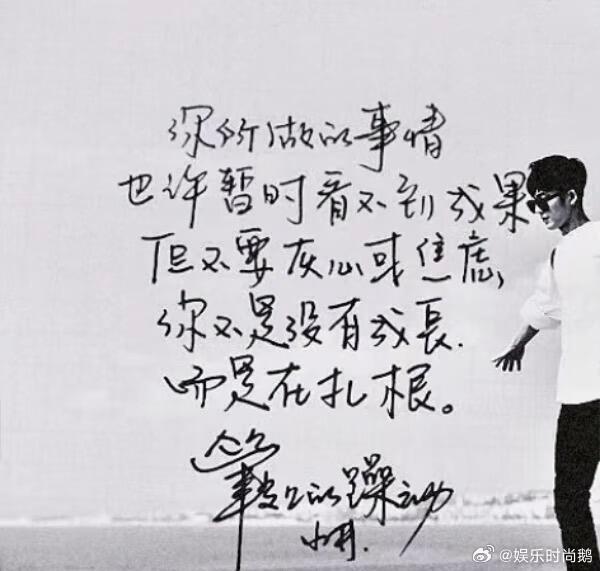 你所做的事情
也许暂时看不到成果
但不要灰心或焦虑,
你不是没有成長.
而是在扎根。
的躁动
@娱乐时尚鹅